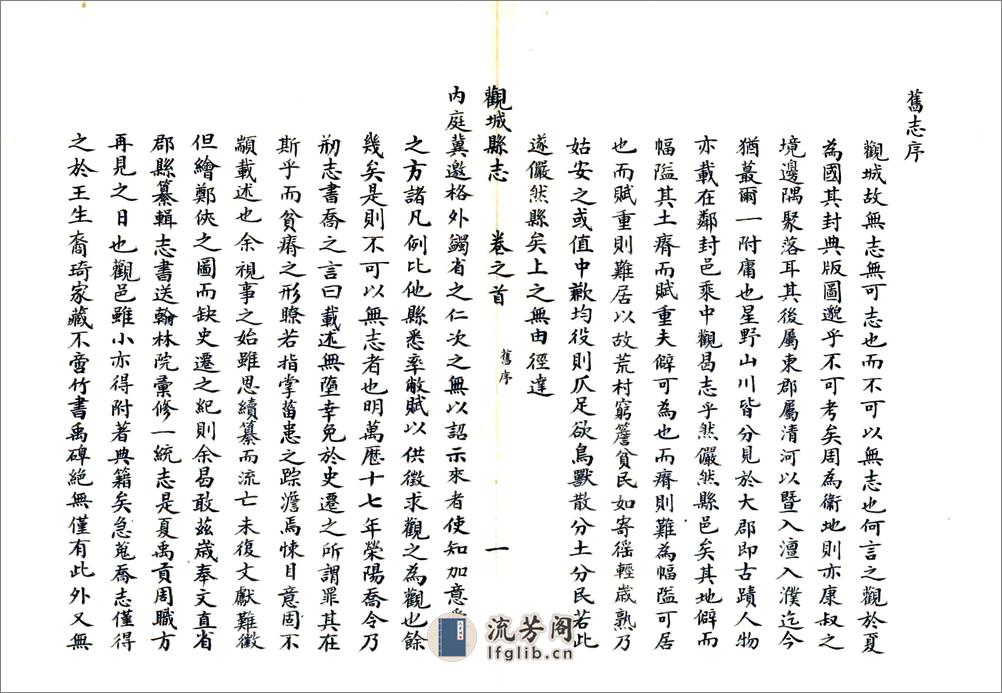 舊志序
觀城故無志無可志也而不可以無志也何言之觀於夏
為國其封典版圖邈乎不可考矣周為衞地則亦康叔之
境邊隅聚落耳其後屬東郡屬清河以暨入澶入濮迄今
猶蕞爾一附庸也星野山川皆分見於大郡即古蹟人物
亦載在鄰封邑乘中觀曷志乎然儼然縣邑矣其地僻而
幅隘其土瘠而賦重夫僻可為也而瘠則難為幅隘可居
也而賦重則難居以故荒村窮簷貧民如寄徭輕歲熟乃
姑安之或值中歉均役則仄足欲鳥獸散分土分民若此
遂儼然縣矣上之無由徑達
觀城縣志 卷之首 舊序 一
內庭冀邀格外蠲省之仁次之無以詔示來者使知加意
之方諸凡例比他縣悉率敝賦以供徵求觀之為觀也餘
幾矣是則不可以無志者也明萬歷十七年榮陽喬令乃
刱志書喬之言曰載述無墮幸免於史遷之所謂罪其在
斯乎而貧瘠之形瞭若指掌菑患之踪澹焉悚目意固不
顓載述也余視事之始雖思續纂而流亡未復文獻難徵
但繪鄭俠之圖而缺史遷之紀則余曷敢茲歲奉文直省
郡縣纂輯志書送翰林院彙修一統志是夏禹貢周職方
再見之日也觀邑雖小亦得附著典籍矣急蒐喬志僅得
之於王生裔琦家藏不啻竹書禹碑絕無僅有此外又無
流芳阁
lfglib.cn